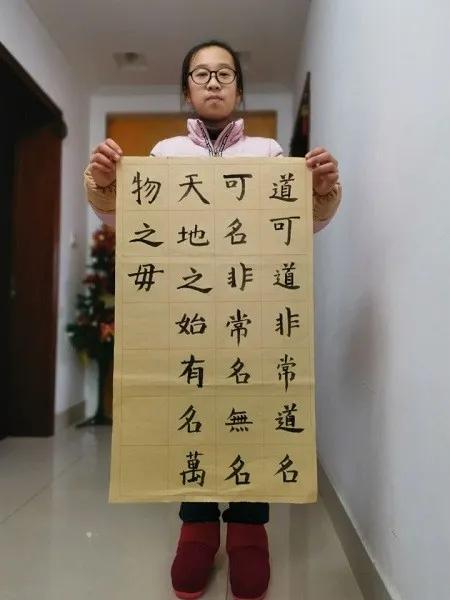 道可道非常道名
可名非常名無名
天地之始有名萬
物之毋